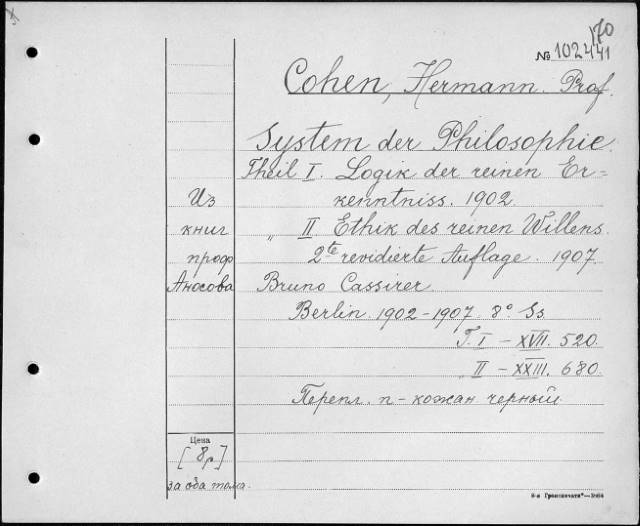 170
№ 102441
Cohen, Hermann. Prof.
System der Philosophie.
Theil I. Logik der reinen Er=
kenntniss. 1902.
„ II Ethik des reinen Willens.
2te revidierte Auflage. 1907.
Bruno Cassirer
Berlin. 1902-1907. 8° Ss.
T. I - XVII. 520.
„ II - XXIII. 680.
Перепл. п-кожан. черный.
Из
книг
проф
Аносова
Цена
[8р]
за оба тома.